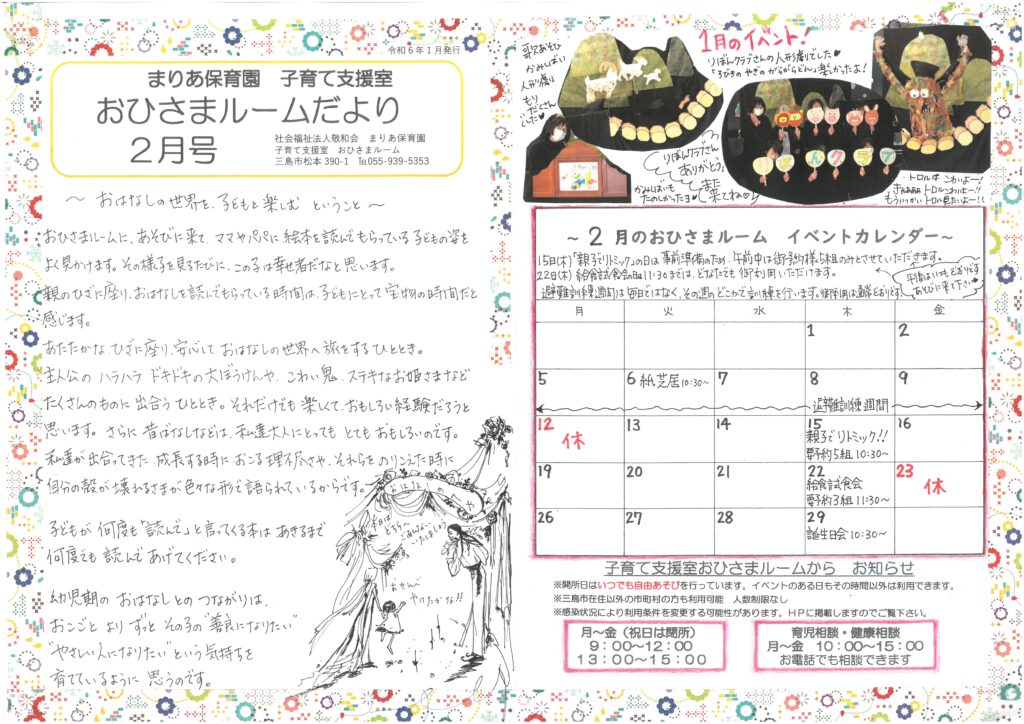 令和6年1月発行
まりあ保育園 子育て支援室
おひさまルームだより
2月号
社会福祉法人敬和会 まりあ保育園
子育て支援室 おひさまルーム
三島市松本390-1 ℡055-939-5353
~ おはなしの世界を、子どもと楽しむ ということ ~
おひさまルームに、あそびに来て、ママやパパに絵本を読んでもらっている子どもの姿を
よく見かけます。その様子を見るたびに、この子は幸せ者だなと思います。
親のひざに座り、おはなしを読んでもらっている時間は、子どもにとって宝物の時間だと
感じます。
あたたかな、ひざに座り、安心して おはなしの世界へ旅をするひととき。
主人公の ハラハラ ドキドキの大ぼうけんや、こわい鬼、ステキなお姫さまなど
たくさんのものに出合うひととき。それだけでも楽しくて、おもしろい経験だろうと
思います。さらに昔ばなしなどは、私達大人にとっても とてもおもしろいのです。
私達が出合ってきた、成長する時におこる理不尽さや、それらをのりこえた時に
自分の殻が壊れるさまが色々な形で語られているからです。
子どもが何度も「読んで」と言ってくる本は、あきるまで
何度でも読んであげてください。
幼児期の おはなしとのつながりは、
おこごと より ずっと その子の"善良になりたい"
"やさしい人になりたい"という気持ちを
育てているように思うのです。
おはなし
本日は
どちらへ
おせんべ
やけたかな!!
歌あそび
かみしばい
人形劇
もり
だくさん
でした
1月のイベント!
りぼんクラブさんの人形劇でした♥
「3びきのやぎのがらがらどん」楽しかったよ!
りぼんクラブさん
ありがとう
また
来てね♡
かみしばいも
たのしかったヨ♥
りぼんクラブ
トロルは こわいよー!
きゃぁぁぁトロルこわいよー!!
もういっかいトロル見たいよー!!
~ 2 月のおひさまルーム イベントカレンダー~
15日(木)「親子でリトミック」の日は事前準備のため、午前中は御予約様5組のみとさせていただきます。
22日(木)給食試食会の日は11:30までは、どなたでも御利用いただけます。
避難訓練週間は毎日ではなく、その週のどこかで訓練を行います。御利用は通常どおりです。
午後はいつもどおりです
あそびに来て下さい♡
月 火 水 木 金
1 2
5 6 紙芝居10:30~ 7 8 9
避難訓練週間
12 休 13 14 15 親子でリトミック!! 要予約5組10:30~ 16
19 20 21 22 給食試食会 要予約3組11:30~ 23 休
26 27 28 29 誕生日会10:30~
子育て支援室おひさまルームから お知らせ
※開所日はいつでも自由あそびを行っています。イベントのある日もその時間以外は利用できます。
※三島市在住以外の市町村の方も利用可能 人数制限なし
※感染状況により利用条件を変更する可能性があります。HPに掲載しますのでご覧下さい。
月~金(祝日は閉所)
9:00~12:00
13:00~15:00
育児相談・健康相談
月~金 10:00~15:00
お電話でも相談できます